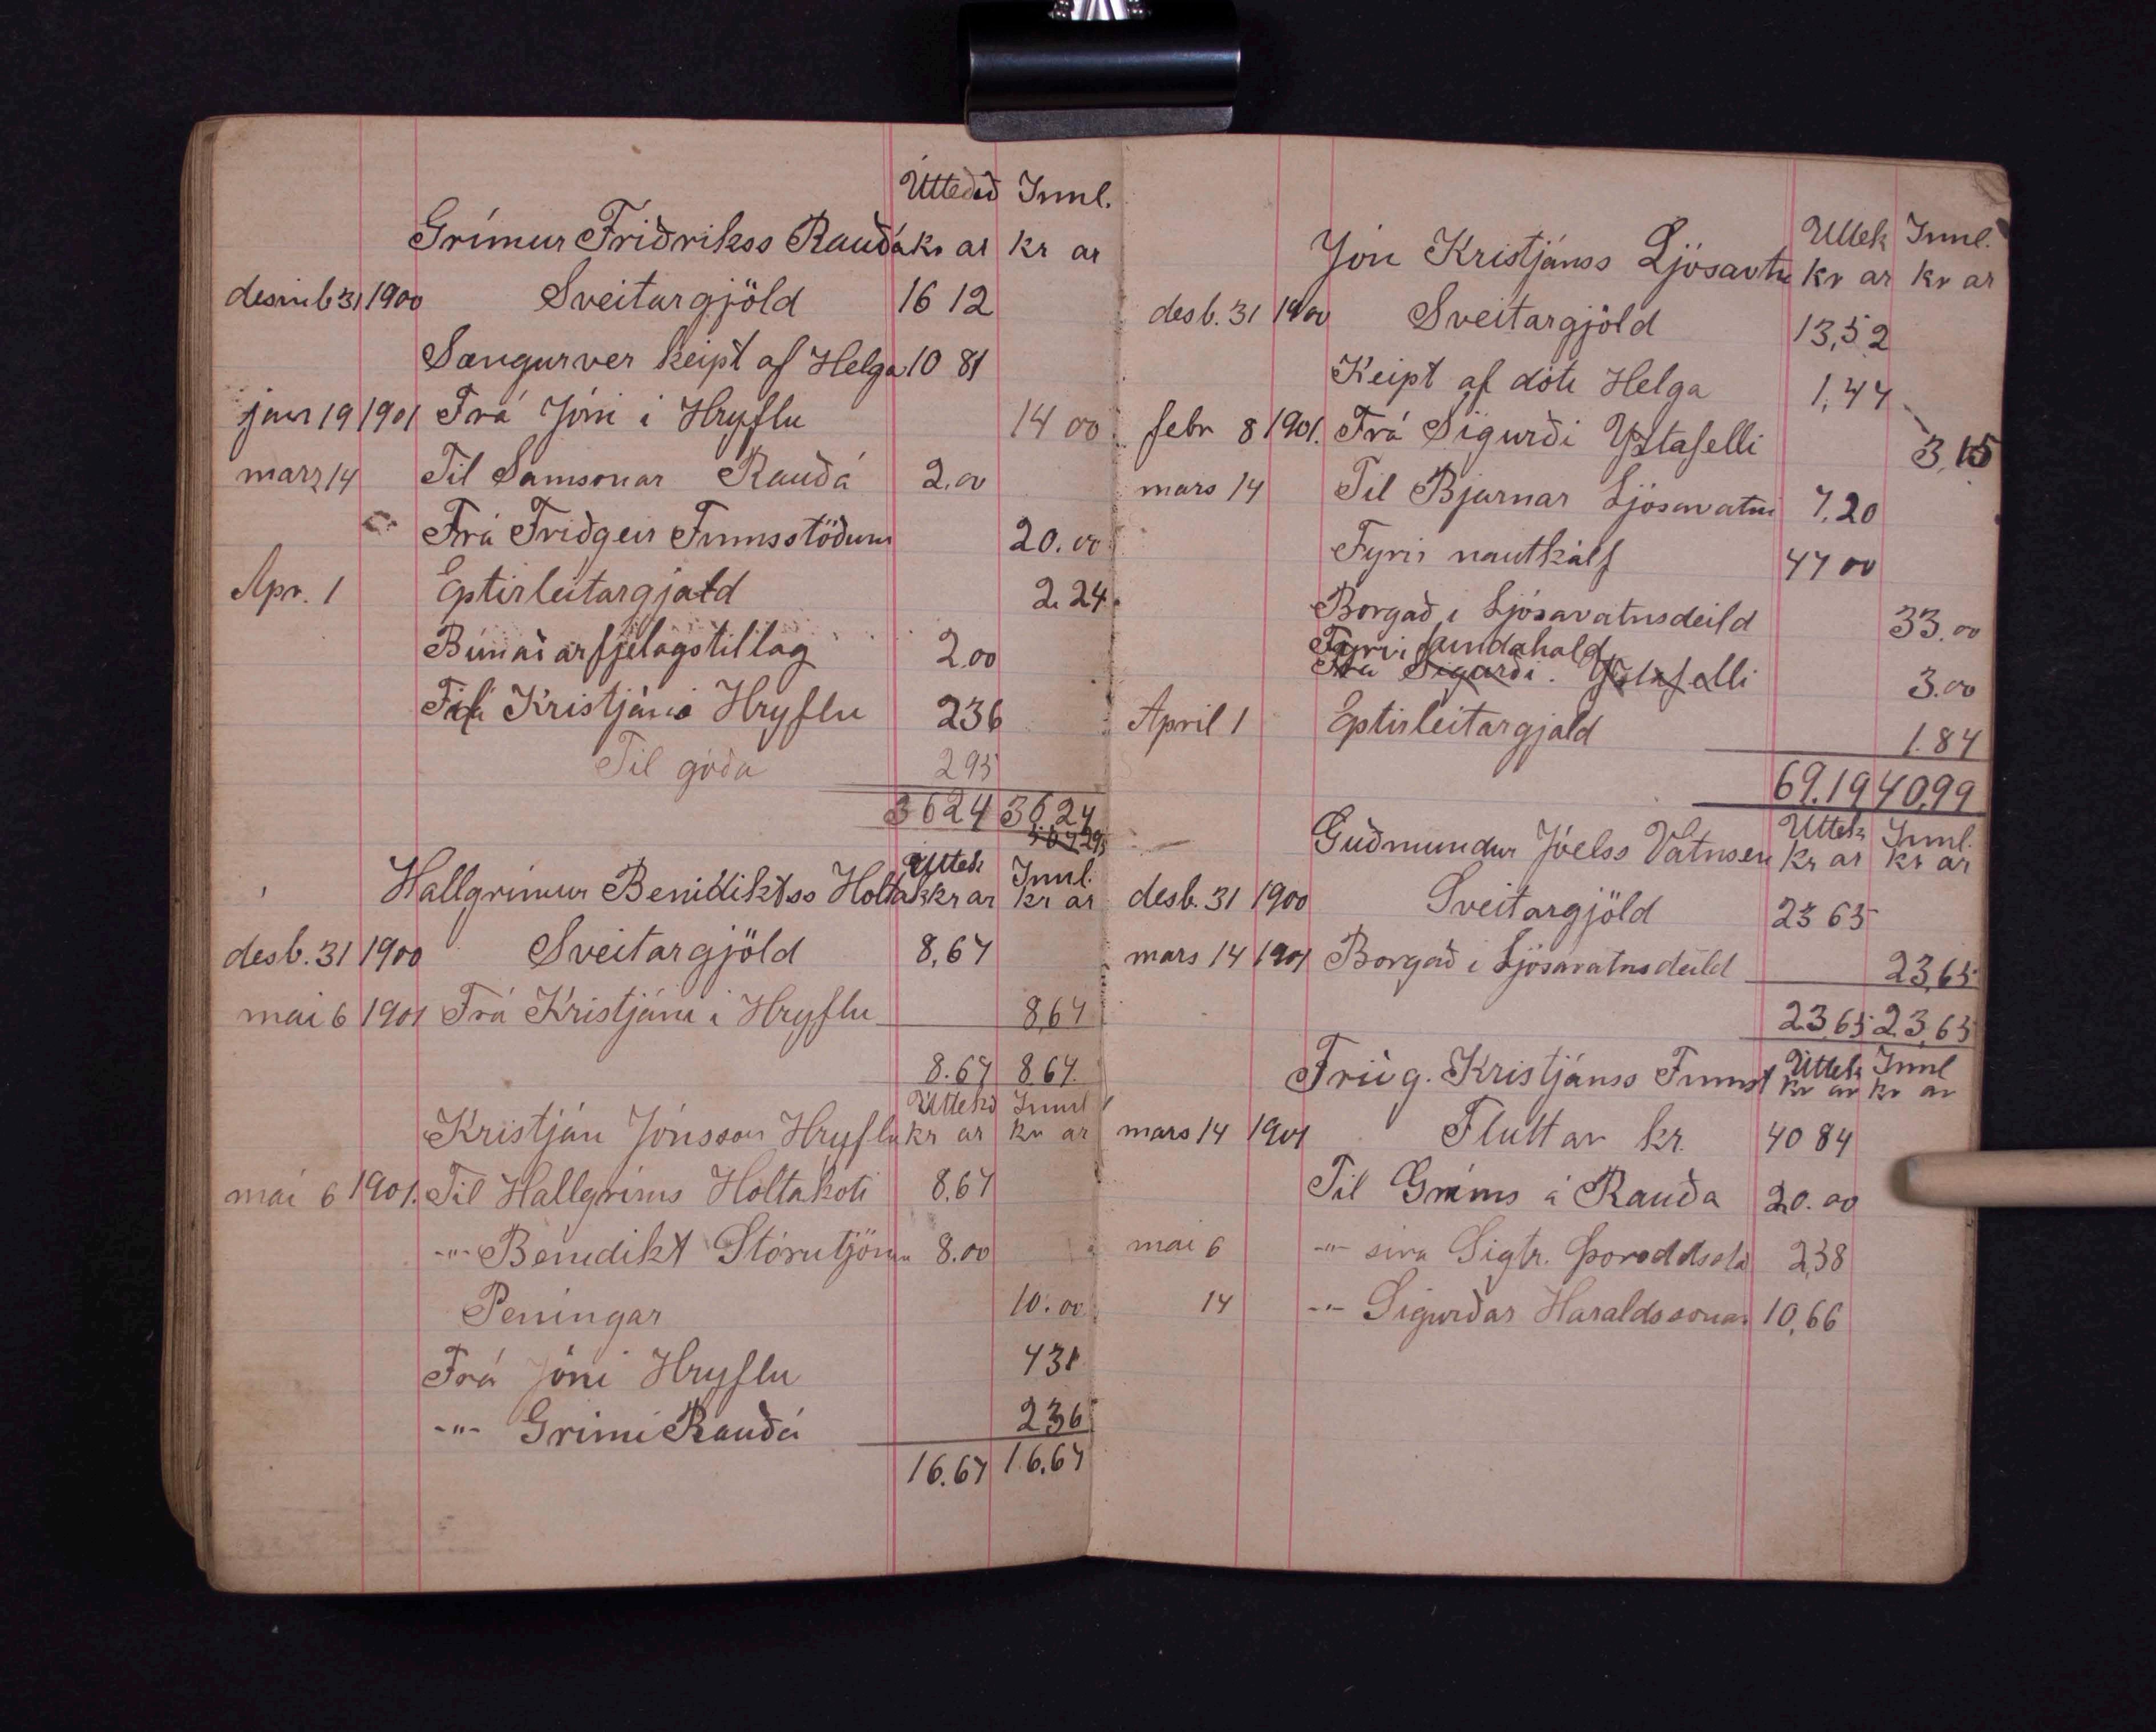 Úttekið Innl.
Grímur Friðrikss Rauðá kr ar kr ar
desmb 31 1900 Sveitargjöld 16 12
Sængurver keipt af Helga 10 81
janr 19 1901 Frá Jóni i Hryflu 14 00
mars 14 Til Samsonar Rauðá 2.00
Frá Friðgeir Finnsstöðum 20.00
Apr. 1 Eptirleitargjald 2.24
Búnaðarfjelagstillag 2.00
Kristjáni Hryflu 2 36
Til góða 2 95
36 24 36.24
Hallgrímur Benidiktss Holtak Úttek Innl. kr ar kr ar
desb. 31 1900 Sveitargjöld 8,67
mai 6 1901 Frá Kristjáni i Hryflu 8,67
8.67 8.67
Úttekð Innl
Kristján Jónsson Hryflu kr ar kr ar
mai 6 1901. Til Hallgríms Holtakoti 8,67
-"- Benidikt Stórutjörnu 8.00
Peningar 10.00
Frá Jóni Hryflu 4 31
-"- Grími Rauðá 2 36
16.67 16.67
Úttek Innl.
Jón Kristjánss Ljósavtn kr ar kr ar
desb. 31 1900 Sveitargjöld 13,52
Keipt af dóti Helga 1,47
febr 8 1901. Frá Sigurði Ystafelli 3,15
mars 14 Til Bjarnar Ljósavatni 7,20
Fyrir nautkálf 47 00
Borgað i Ljósavatnsdeild 33.00
Fyrir fundahald
Frá Sigurði. Ystafelli 3.00
April 1 Eptirleitargjald 1.84
69.19 40,99
Guðmundur Jóelss Vatnsen Úttek Innl. kr ar kr ar
desb. 31 1900 Sveitargjöld 23 65
mars 14 1901 Borgað i Ljósavatnsdeild 23,65
23,65 23,65
Friðg. Kristjánss Finnst Úttek Innl kr ar kr ar
mars 14 1901 Fluttar kr. 40 84
Til Gríms á Rauða 20.00
mai 6 -"- síra Sigtr. Þoroddsstd 2,38
14 -"- Sigurðar Haraldssonar 10,66